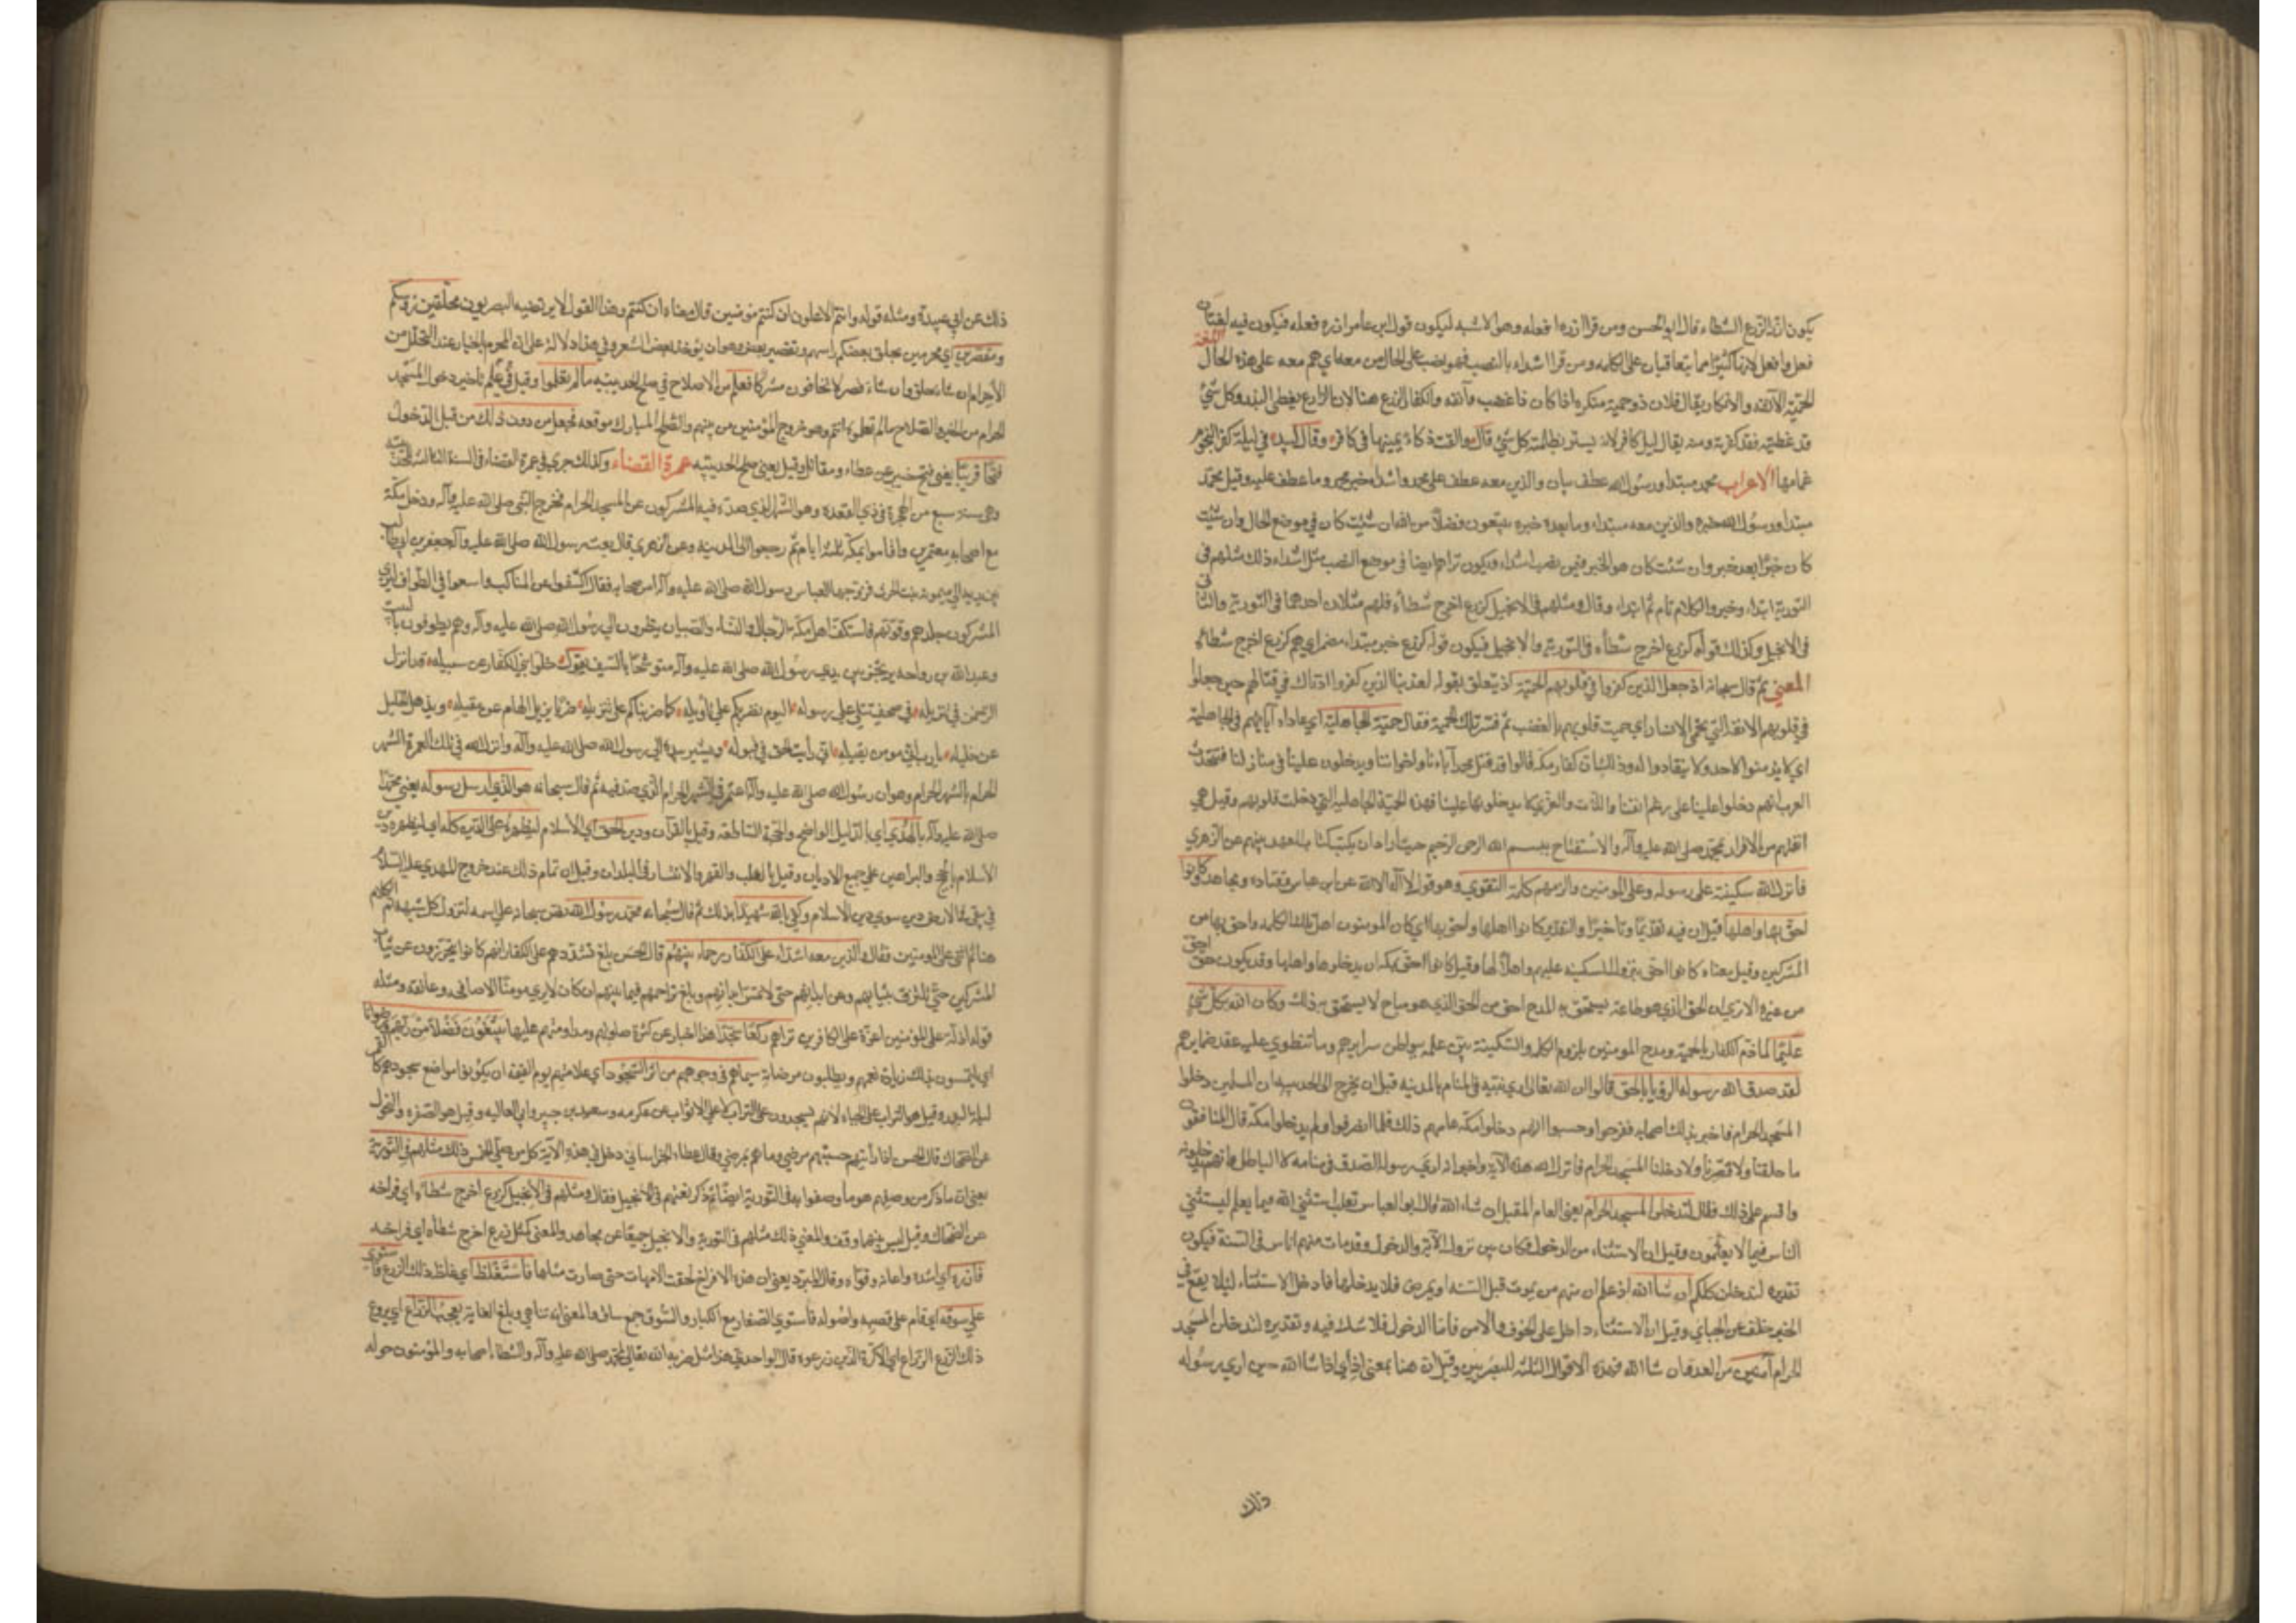 يكون ازر الزرع الشطاء قال ابو الحسن ومن قرا ازره افعله وهو الاشبه ليكون قول ابن عامر ازره فعله فيكون فيه لغتان اللغة
فعل وافعل لانهما كثيرا مما يتعاقبان على الكلمه ومن قرا اشداء بالنصب فهو نصب على الحال من معه اي هم معه على هذه الحال
الحمية الانفه والانكار يقال فلان ذو حمية منكره اذا كان ذا غضب وانفه والكفار الزرع هنا لان الزارع يغطي البذر وكل شئ
قد غطيته فقد كفرته ومنه يقال لليل كافر لانه يستر بظلمته كل شئ قال والقت ذكاء يمينها في كافر وقال لبيد في ليلة كفر النجوم
غمامها الاعراب محمد مبتدا ورسول الله عطف بيان والذين معه عطف على محمد واشداء خبر محمد وما عطف عليه وقيل محمد
مبتدا ورسول الله خبره والذين معه مبتداء وما بعده خبره يبتغون فضلا من الله ان شئت كان في موضع الحال وان شئت
كان خبرا بعد خبر وان شئت كان هو الخبر فيمن نصب اشداء ويكون تراهم ايضا في موضع النصب مثل اشداء ذلك مثلهم في
التورية ابتداء وخبر والكلام تام ثم ابتداء وقال ومثلهم في الانجيل كزرع اخرج شطأه فلهم مثلان احدهما في التورية والثاني
في الانجيل وكذلك قوله كزرع اخرج شطأه في التورية والانجيل فيكون قوله كزرع خبر مبتداء مضمر اي هم كزرع اخرج شطاه
المعني ثم قال سبحانه اذ جعل الذين كفروا في قلوبهم الحمية اذ يتعلق بقوله لعذبنا الذين كفروا اذناك في قتالهم حين جعلوا
في قلوبهم الانفة التي تحمي الانسان اي حميت قلوبهم بالغضب ثم فسر تلك الحمية فقال حمية الجاهلية اي عاداه آبائهم في الجاهلية
اي لا يذعنوا لاحد ولا ينقادوا له وذلك ان كفار مكه قالوا قد قتل محمد آباءنا واخواننا ويدخلون علينا في منازلنا فتتحدث
العرب انهم دخلوا علينا على رغم انفنا واللات والعزي لا يدخلونها علينا فهذه الحمية الجاهلية التي دخلت قلوبهم وقيل هي
انفتهم من الاقرار لمحمد صلى الله عليه وآله والاستفتاح ببسم الله الرحمن الرحيم حيث اراد ان يكتب كتاب العهد بينهم عن الزهري
فانزل الله سكينته على رسوله وعلى المومنين والزمهم كلمة التقوي وهو قول لا اله الا الله عن ابن عباس وقتاده ومجاهد كانوا
احق بها واهلها قيل ان فيه تقديما وتاخيرا والتقدير كانوا اهلها واحق بها اي كان المومنون اهل تلك الكلمه واحق بها من
المشركين وقيل معناه كانوا احق بنزول السكينه عليهم واهلا لها وقيل كانوا احق بمكه ان يدخلوها واهلها وقد يكون حق احق
من غيره الا تري ان الحق الذي هو طاعه يستحق به المدح احق من الحق الذي هو مباح لا يستحق به ذلك وكان الله بكل شئ
عليما لما ذم الكفار بالحمية ومدح المومنين بلزوم الكلمة والسكينة بين علمه ببواطن سرايرهم وما تنطوي عليه عقد ضمايرهم
لقد صدق الله رسوله الرؤيا بالحق قالوا ان الله تعالى اري نبيه في المنام بالمدينه قبل ان يخرج الى الحديبيه ان المسلمين دخلوا
المسجد الحرام فاخبر بذلك اصحابه ففرحوا وحسبوا انهم دخلوا مكة عامهم ذلك فلما انصرفوا ولم يدخلوا مكة قال المنافقون
ما حلقنا ولا قصرنا ولا دخلنا المسجد الحرام فانزل الله هذه الآية واخبر انه اري رسوله الصدق في منامه لا الباطل وانهم يدخلونه
واقسم على ذلك فقال لتدخلن المسجد الحرام يعني العام المقبل ان شاء الله قال ابو العباس ثعلب استثني الله فيما يعلم ليستثني
الناس فيما لا يعلمون وقيل ان الاستثناء من الدخول وكان بين نزول الآية والدخول وقد مات منهم اناس في السنة فيكون
تقديره لتدخلن كلكم ان شاء الله اذ علم ان منهم من يموت قبل السنه او يمرض فلا يدخلها فادخل الاستثناء لئلا يقع في
الخبر خلف عن الجبايي وقيل ان الاستثناء داخل على الخوف والامن فاما الدخول فلا شك فيه وتقديره لتدخلن المسجد
الحرام آمنين من العدو ان شاء الله فهذه الاقوال الثلثه للبصريين وقيل ان هنا بمعني اذ اي اذ شاء الله حين اري رسوله
ذلك
ذلك عن ابي عبيدة ومثله قوله وانتم الاعلون ان كنتم مؤمنين قال معناه اذ كنتم وهذا القول لا يرتضيه البصريون محلقين رؤسكم
ومقصرين اي محرمين يحلق بعضكم راسه ويقصر بعض وهو ان يوخذ بعض الشعر وفي هذا دلالة على ان المحرم بالخيار عند التحلل من
الاحرام ان شاء حلق وان شاء قصر لا تخافون مشركا فعلم من الاصلاح في صلح الحديبيه ما لم تعلموا وقيل في علم تاخير دخول المسجد
الحرام من الخير والصلاح ما لم تعلموه انتم وهو خروج المؤمنين من بينهم والصلح المبارك موقعه فجعل من دون ذلك من قبل الدخول
فتحا قريبا يعني فتح خيبر عن عطاء ومقاتل وقيل يعني صلح الحديبيه عمرة القضاء وكذلك جري في عمرة القضاء في السنة التاليه للحديبيه
وهي سنة سبع من الهجرة في ذي القعده وهو الشهر الذي صده فيه المشركون عن المسجد الحرام فخرج النبي صلى الله عليه وآله ودخل مكة
مع اصحابه معتمرين واقاموا بمكة ثلثة ايام ثم رجعوا الى المدينه وعن الزهري قال بعث رسول الله صلى الله عليه وآله جعفر بن ابي طالب
بين يديه الى ميمونه بنت الحرث فزوجها العباس رسول الله صلى الله عليه وآله امر اصحابه فقال اكشفوا عن المناكب واسعوا في الطواف ليري
المشركون جلدهم وقوتهم فاستكف اهل مكة الرجال والنساء والصبيان ينظرون الى رسول الله صلى الله عليه وآله وهم يطوفون بالبيت
وعبد الله بن رواحه يرتجز بين يدي رسول الله صلى الله عليه وآله متوشحا بالسيف يقول خلوا بني الكفار عن سبيله قد انزل
الرحمن في تنزيله في صحف تتلي على رسوله اليوم نضربكم على تأويله كما ضربناكم على تنزيله ضربا يزيل الهام عن مقيله ويذهل الخليل
عن خليله يا رب اني مومن بقيله اني رأيت الحق في قبوله ويشير بيده الى رسول الله صلى الله عليه وآله وانزل الله في تلك العمرة الشهر
الحرام بالشهر الحرام وهو ان رسول الله صلى الله عليه وآله اعتمر في الشهر الحرام الذي صد فيه ثم قال سبحانه هو الذي ارسل رسوله يعني محمدا
صلى الله عليه وآله بالهدي اي بالدليل الواضح والحجة الساطعه وقيل بالقرآن ودين الحق اي الاسلام ليظهره على الدين كله اي ليظهر دين
الاسلام بالحجج والبراهين على جميع الاديان وقيل بالغلب والقهر والانتشار في البلدان وقيل ان تمام ذلك عند خروج المهدي عليه السلام
في يبقي في الارض دين سوي دين الاسلام وكفي بالله شهيدا بذلك ثم قال سبحانه محمد رسول الله نص سبحانه على اسمه ليزيل كل شبهه تم الكلام
هنا ثم اثني على المومنين فقال والذين معه اشداء على الكفار رحماء بينهم قال الحسن بلغ تشددهم على الكفار انهم كانوا يتحرزون عن ثياب
المشركين حتى لا تلتزق بثيابهم وعن ابدانهم حتى لا تمس ابدانهم وبلغ تراحمهم فيما بينهم ان كان لا يري مومن مومنا الا صافحه وعانقه ومثله
قوله اذلة على المؤمنين اعزة على الكافرين تراهم ركعا سجدا هذا اخبار عن كثرة صلوتهم ومداومتهم عليها يبتغون فضلا من ربهم ورضوانا
اي يلتمسون بذلك زيادة نعمهم ويطلبون مرضاته سيماهم في وجوههم من اثر السجود اي علامتهم يوم القيمة ان يكون مواضع سجودهم كالقمر
ليلة البدر وقيل هو التراب على الجباه لانهم يسجدون على التراب لا على الاثواب عن عكرمه وسعيد بن جبير وابي العاليه وقيل هو الصفره والنحول
عن الضحاك قال الحسن اذا رأيتهم حسبتهم مرضي وما هم بمرضي وقال عطاء الخراساني دخل في هذه الآية كل من صلى الخمس ذلك مثلهم في التورية
يعني ان ما ذكر من وصفهم هو ما وصفوا به في التورية ايضا ثم ذكر نعتهم في الانجيل فقال ومثلهم في الانجيل كزرع اخرج شطأه اي فراخه
عن الضحاك وقيل ليس بينهما وقف والمعني ذلك مثلهم في التورية والانجيل جميعا عن مجاهد والمعني كمثل زرع اخرج شطأه اي فراخه
فازره اي شده واعانه وقواه وقال المبرد يعني ان هذه الافراخ لحقت الامهات حتى صارت مثلها فاستغلظ اي غلظ ذلك الزرع فاستوي
على سوقه اي قام على قصبه واصوله فاستوي الصغار مع الكبار والسوق جمع ساق والمعني انه تناهي وبلغ الغاية يعجب الزراع اي يروع
ذلك الزرع الزراع اي الاكرة الذين زرعوه قال الواحدي هذا مثل ضربه الله تعالى لمحمد صلى الله عليه وآله والشطا اصحابه والمؤمنون حوله